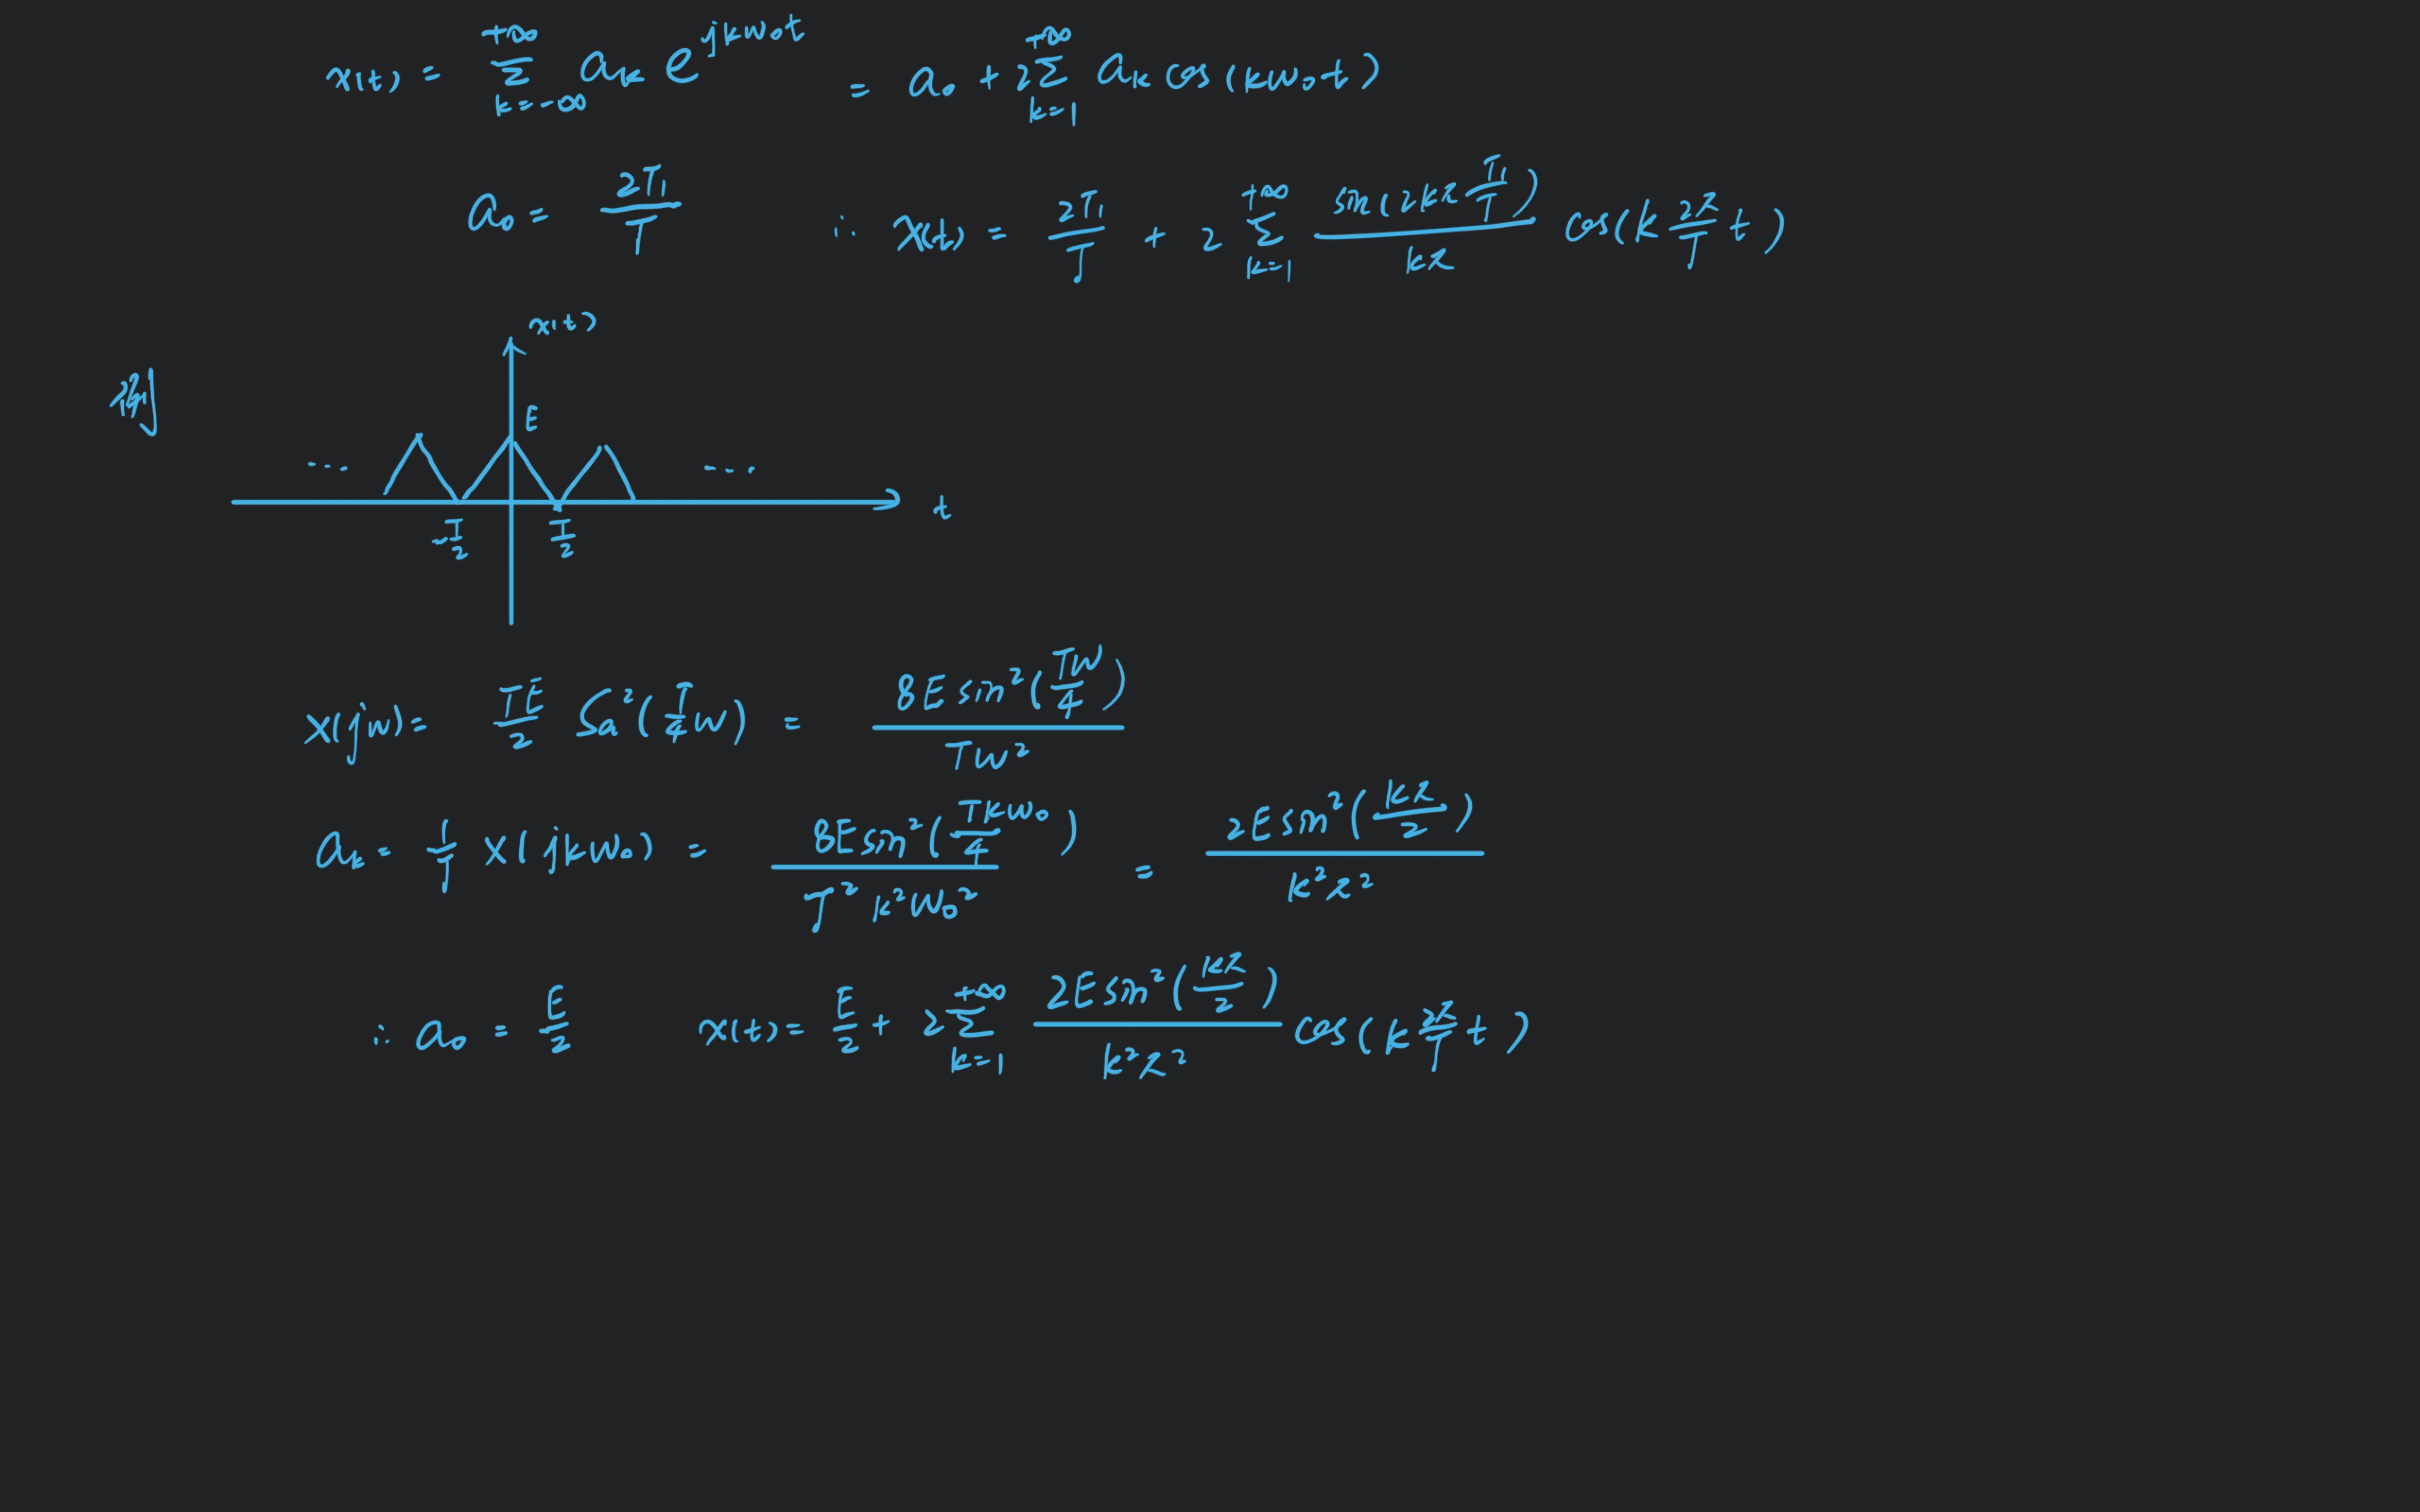 x(t) = \sum_{k=-\infty}^{+\infty} a_k e^{jk\omega_0 t} = a_0 + 2\sum_{k=1}^{+\infty} a_k \cos(k\omega_0 t)
a_0 = \frac{2T_1}{T} \therefore x(t) = \frac{2T_1}{T} + 2\sum_{k=1}^{+\infty} \frac{\sin(2k\pi\frac{T_1}{T})}{k\pi} \cos(k\frac{2\pi}{T}t)
x(t)
例
E
... ...
t
-\frac{T}{2} \frac{T}{2}
X(j\omega) = \frac{TE}{2} Sa^2(\frac{T}{4}\omega) = \frac{8E\sin^2(\frac{T\omega}{4})}{T\omega^2}
a_k = \frac{1}{T} X(jk\omega_0) = \frac{8E\sin^2(\frac{Tk\omega_0}{4})}{T^2k^2\omega_0^2} = \frac{2E\sin^2(\frac{k\pi}{2})}{k^2\pi^2}
\therefore a_0 = \frac{E}{2} x(t) = \frac{E}{2} + 2\sum_{k=1}^{+\infty} \frac{2E\sin^2(\frac{k\pi}{2})}{k^2\pi^2} \cos(k\frac{2\pi}{T}t)